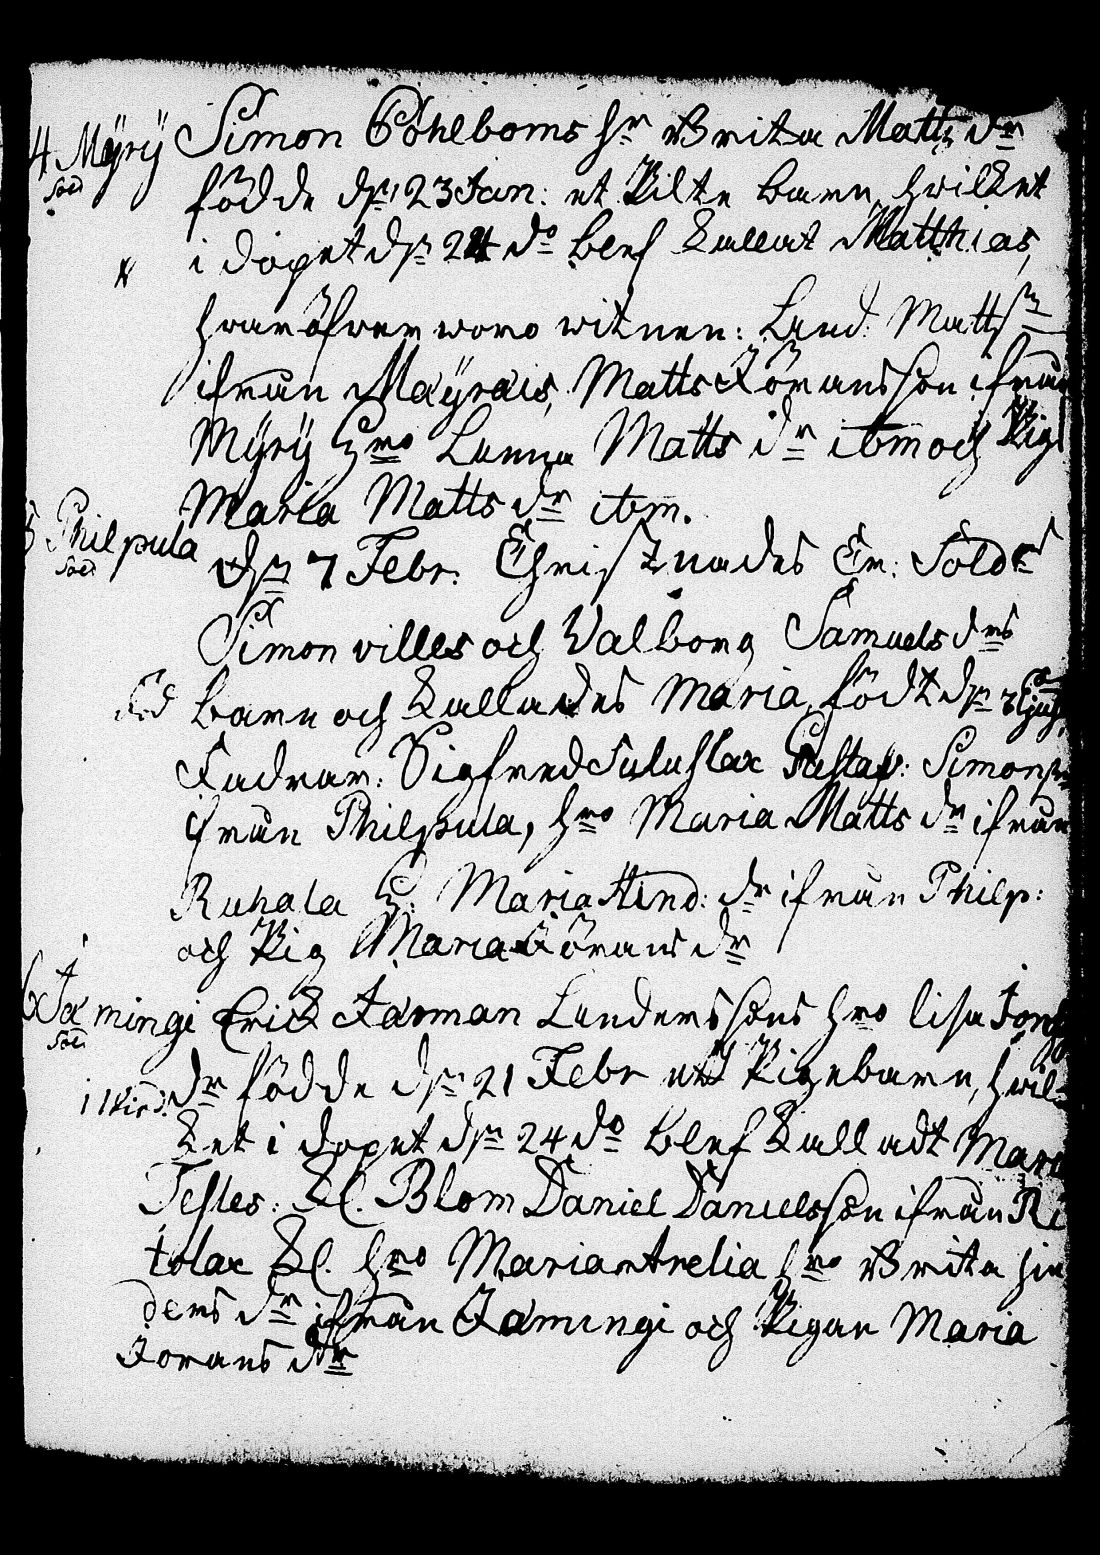 4 Mÿrÿ Simon Pohlboms hr Brita Matts dr
Söld
födde dn 23 Jan: et Pilte barn, hvilket
i dopet dn 24 do blef kallat Matthias,
hvaröfver woro witnen: Land: Matts
ifrån Maÿrais, Matts Jöransson ifrån
Mÿrÿ hro Lunna Matts dr itm och Pig
Maria Matts dr itm.
5 Philpula
Söld
dn 7 Febr. Christnades Er: Sold
Simon villes och Valborg Samuels drs
barn och kallades Maria, födt dn
Fadrar: Sigfred Suluslax Gustaf: Simons
ifrån Philpula, hro Maria Matts dr ifrån
Ruhala H: Maria Hind: dr ifrån Philp:
och Pig Maria Görans dr
6 Jamingi Erick Jarman Lunderssons hro lisa
Söld
dr födde dn 21 Febr ett Pigebarn, hvil-
ket i dopet dn 24 do blef kalladt Mari
Testes: Kl. Blom Daniel Danielsson ifrån Ri
tolax Kl. hro Maria Arelia hro Brita hin
ders dr ifrån Jamingi och Pigan Maria
Jorans dr